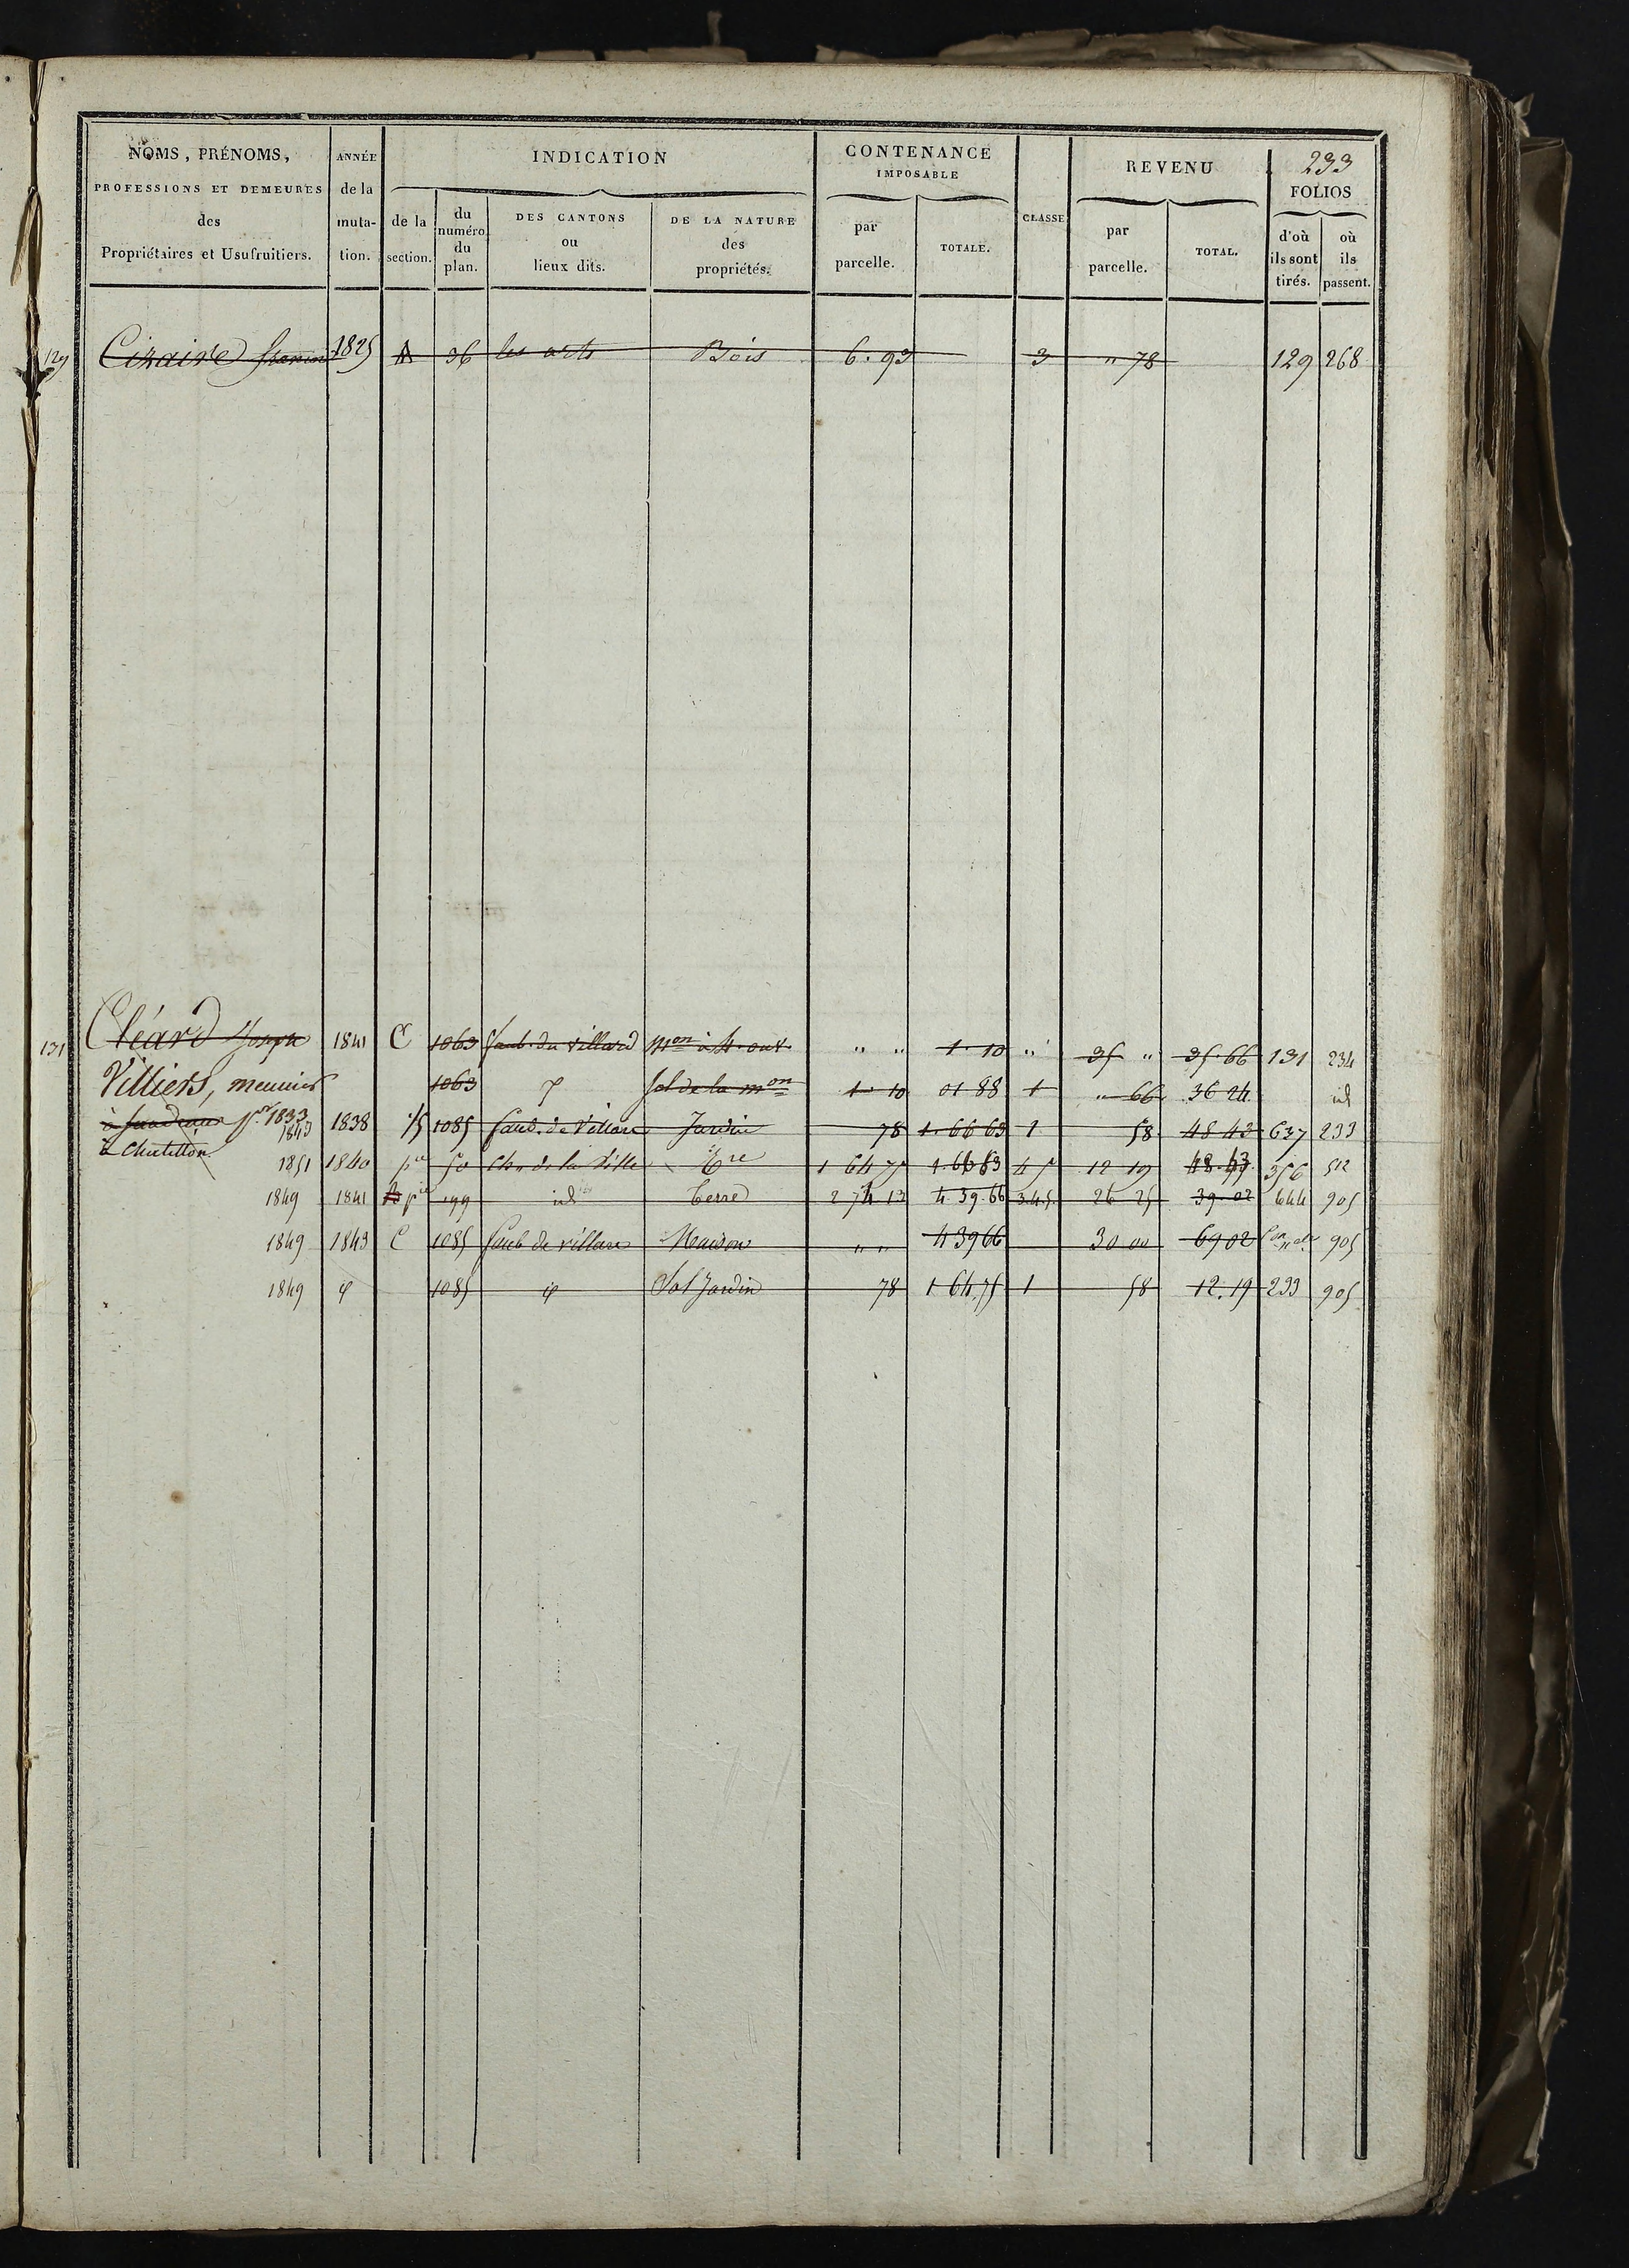 233
NOMS, PRÉNOMS, PROFESSIONS ET DEMEURES des Propriétaires et Usufruitiers.
ANNÉE de la mutation.
INDICATION
de la section.
du numéro du plan.
DES CANTONS ou lieux dits.
DE LA NATURE des propriétés.
CONTENANCE IMPOSABLE
par parcelle.
TOTALE.
CLASSE
REVENU
par parcelle.
TOTAL.
FOLIOS
d'où ils sont tirés.
où ils passent.
129 1825 A 36 les Bois 6.93 3 " 78 129 268
131 Cléard Joseph 1841 C 1063 faub. du villard Mon à 4. ouv. " " 1.10 " 35 " 35.66 131 234
Villiers, meunier 1063 sol de la mon 1 10 01 88 1 " 66 36 24 id
1833 1843 1838 1085 faub. de Villars Jardin 78 1.66 63 1 58 48 43 637 233
à Chatillon
1851 1840 pie 50 Ch. de la Ville Tre 1 64 75 4 5 12 19 356 512
1849 1841 B pie 199 id Terre 2 74 13 4.39.66 3.4.5 26 25 39.02 644 905
1849 1843 C 1085 faub de villars Maison " " 4 39 66 30 00 69 02 905
1849 1085 Sol Jardin 78 1 64 75 1 58 12.19 233 905